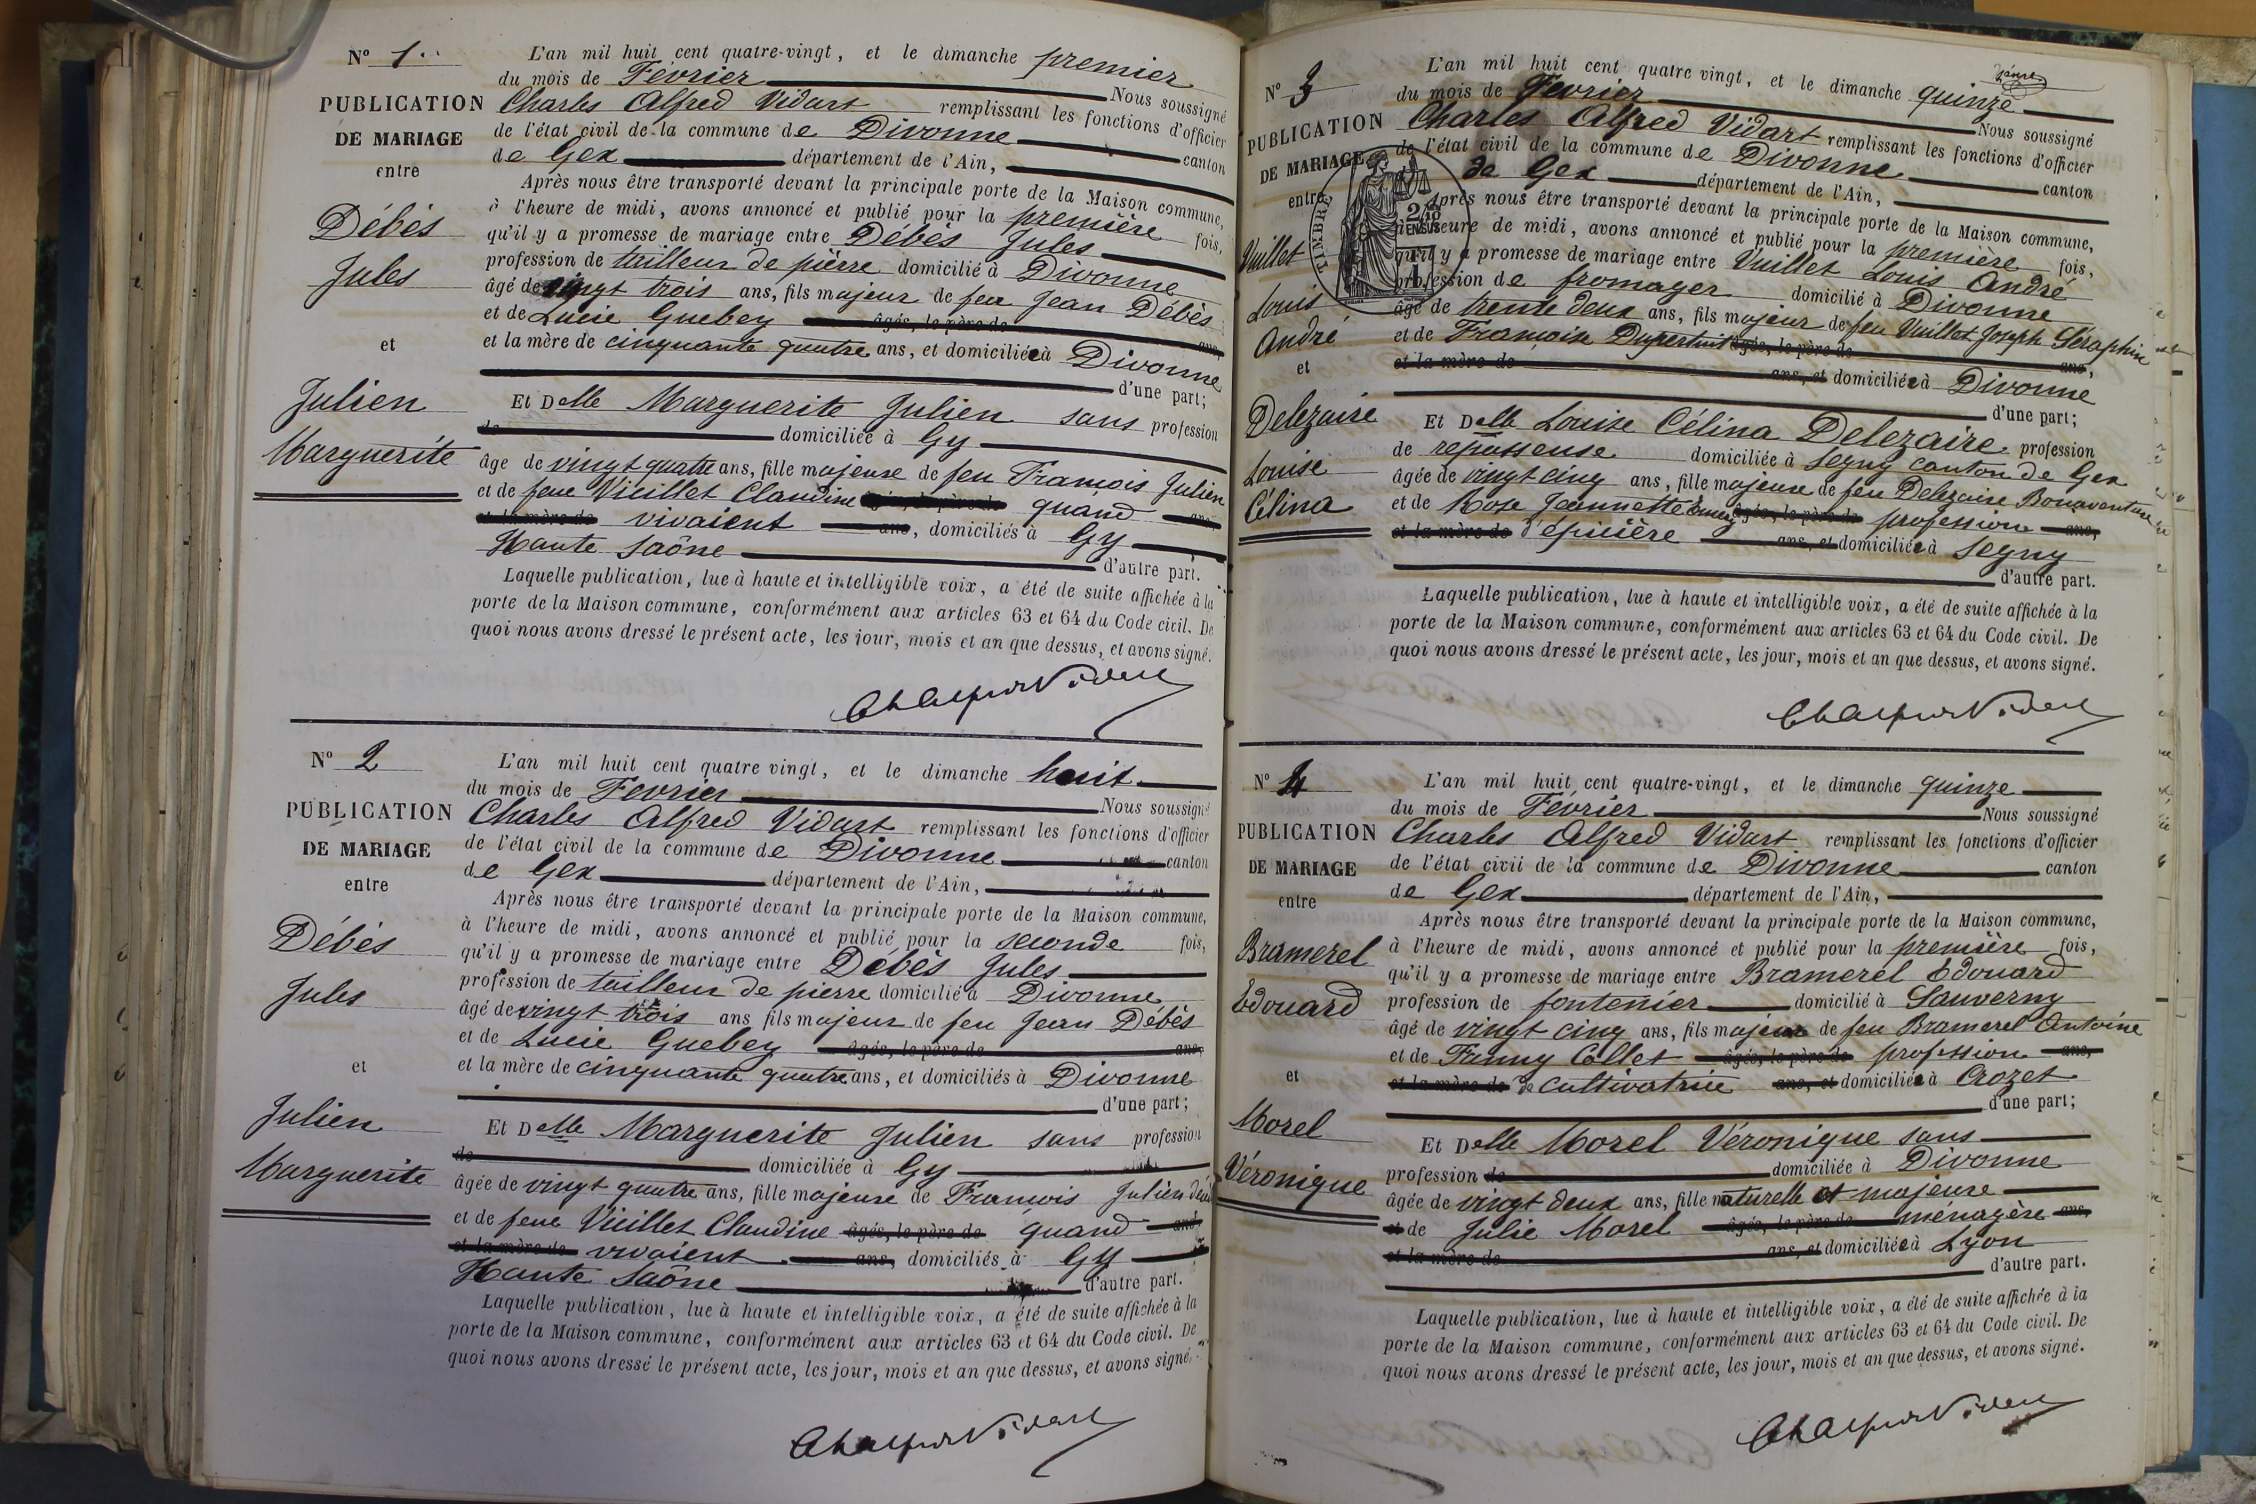 N° 1
PUBLICATION
DE MARIAGE
entre
Débés
Jules
et
Julien
Marguerite
L'an mil huit cent quatre-vingt, et le dimanche premier
du mois de Février Nous soussigné
Charles Alfred Vidart remplissant les fonctions d'officier
de l'état civil de la commune de Divonne canton
de Gex département de l'Ain,
Après nous être transporté devant la principale porte de la Maison commune,
à l'heure de midi, avons annoncé et publié pour la première fois,
qu'il y a promesse de mariage entre Débès Jules
profession de tailleur de pierre domicilié à Divonne
âgé de vingt trois ans, fils majeur de feu Jean Débès
et de Lucie Guebey âgés, le père de ans,
et la mère de cinquante quatre ans, et domiciliée à Divonne
d'une part;
Et Delle Marguerite Julien sans profession
de domiciliée à Gy
âge de vingt quatre ans, fille majeure de feu Francois Julien
et de feue Vieillet Claudine quand ans,
et la mère de vivaient ans, domiciliés à Gy
Haute Saône
d'autre part.
Laquelle publication, lue à haute et intelligible voix, a été de suite affichée à la
porte de la Maison commune, conformément aux articles 63 et 64 du Code civil. De
quoi nous avons dressé le présent acte, les jour, mois et an que dessus, et avons signé.
N° 2
PUBLICATION
DE MARIAGE
entre
Débés
Jules
et
Julien
Marguerite
L'an mil huit cent quatre vingt, et le dimanche huit
du mois de Fevrier Nous soussigné
Charles Alfred Vidart remplissant les fonctions d'officier
de l'état civil de la commune de Divonne canton
de Gex département de l'Ain,
Après nous être transporté devant la principale porte de la Maison commune,
à l'heure de midi, avons annoncé et publié pour la seconde fois,
qu'il y a promesse de mariage entre Débès Jules
profession de tailleur de pierre domicilié à Divonne
âgé de vingt trois ans fils majeur de feu Jean Débès
et de Lucie Guebey âgés, le père de ans,
et la mère de cinquante quatre ans, et domiciliés à Divonne
d'une part;
Et Delle Marguerite Julien sans profession
de domiciliée à Gy
âgée de vingt quatre ans, fille majeure de Francois Julien
et de feue Vieillet Claudine âgés, le père de quand ans,
et la mère de vivaient ans, domiciliés à Gy
Haute Saône d'autre part.
Laquelle publication, lue à haute et intelligible voix, a été de suite affichée à la
porte de la Maison commune, conformément aux articles 63 et 64 du Code civil. De
quoi nous avons dressé le présent acte, les jour, mois et an que dessus, et avons signé.
N° 3
PUBLICATION
DE MARIAGE
entre
Vuillet
Louis
André
et
Delezaire
Louise
Célina
TIMBRE
L'an mil huit cent quatre vingt, et le dimanche quinze
du mois de Fevrier Nous soussigné
Charles Alfred Vidart remplissant les fonctions d'officier
de l'état civil de la commune de Divonne canton
de Gex département de l'Ain,
Après nous être transporté devant la principale porte de la Maison commune,
à l'heure de midi, avons annoncé et publié pour la première fois,
qu'il y a promesse de mariage entre Vuillet Louis André
profession de fromager domicilié à Divonne
âgé de trente deux ans, fils majeur de feu Vuillet Joseph Séraphin
et de Francoise Dupertuis âgés, le père de ans,
et la mère de ans, et domiciliée à Divonne
d'une part;
Et Delle Louise Célina Delezaire profession
de repasseuse domiciliée à Segny canton de Gex
âgée de vingt cinq ans, fille majeure de feu Delezaire Bonaventure
et de Rose Jeannette âgés, le père de profession ans,
et la mère de d'épicière ans, et domiciliée à Segny
d'autre part.
Laquelle publication, lue à haute et intelligible voix, a été de suite affichée à la
porte de la Maison commune, conformément aux articles 63 et 64 du Code civil. De
quoi nous avons dressé le présent acte, les jour, mois et an que dessus, et avons signé.
N° 4
PUBLICATION
DE MARIAGE
entre
Bramerel
Edouard
et
Morel
Véronique
L'an mil huit cent quatre-vingt, et le dimanche quinze
du mois de Février Nous soussigné
Charles Alfred Vidart remplissant les fonctions d'officier
de l'état civil de la commune de Divonne canton
de Gex département de l'Ain,
Après nous être transporté devant la principale porte de la Maison commune,
à l'heure de midi, avons annoncé et publié pour la première fois,
qu'il y a promesse de mariage entre Bramerel Edouard
profession de fontenier domicilié à Sauverny
âgé de vingt cinq ans, fils majeur de feu Bramerel Antoine
et de Fanny Collet âgés, le père de profession ans,
et la mère de de cultivatrice ans, et domiciliée à Crozet
d'une part;
Et Delle Morel Véronique sans
profession de domiciliée à Divonne
âgée de vingt deux ans, fille naturelle et majeure
et de Julie Morel âgés, le père de ménagère ans,
et la mère de ans, et domiciliée à Lyon
d'autre part.
Laquelle publication, lue à haute et intelligible voix, a été de suite affichée à la
porte de la Maison commune, conformément aux articles 63 et 64 du Code civil. De
quoi nous avons dressé le présent acte, les jour, mois et an que dessus, et avons signé.